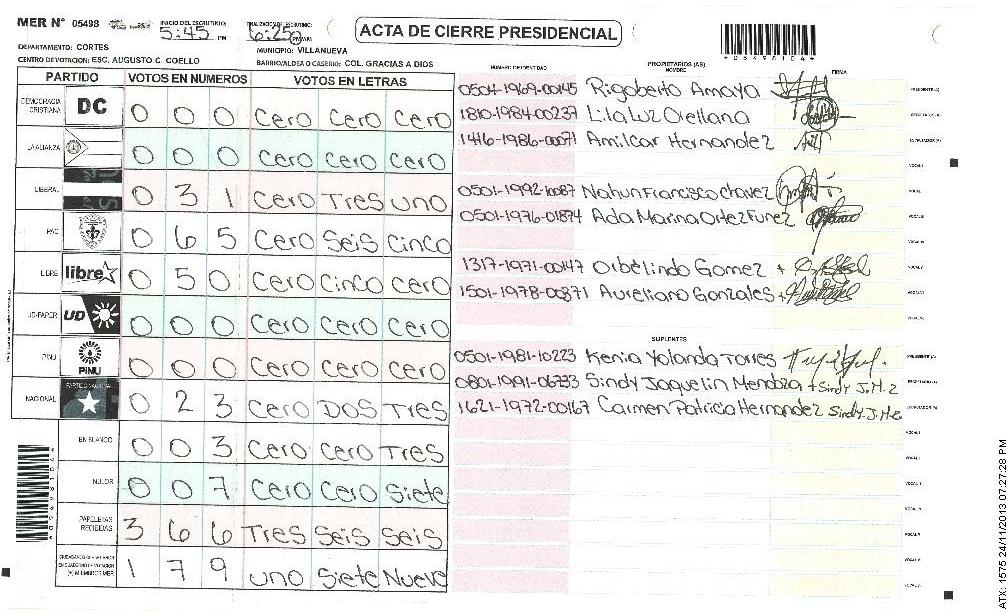 MER N° 05498
INICIO DEL ESCRUTINIO: 5:45 PM
FINALIZACION DE ESCRUTINIO: 6:25 PM/AM
ACTA DE CIERRE PRESIDENCIAL
*05498104*
DEPARTAMENTO: CORTES
MUNICIPIO: VILLANUEVA
CENTRO DE VOTACION: ESC. AUGUSTO C. COELLO
BARRIO/ALDEA O CASERIO: COL. GRACIAS A DIOS
PARTIDO VOTOS EN NUMEROS VOTOS EN LETRAS
DEMOCRACIA CRISTIANA DC 0 0 0 Cero Cero Cero
LA ALIANZA 0 0 0 Cero Cero Cero
LIBERAL 0 3 1 Cero Tres uno
PAC 0 6 5 Cero Seis Cinco
LIBRE libre 0 5 0 Cero Cinco Cero
UD-FAPER UD 0 0 0 Cero Cero Cero
PINU PINU 0 0 0 Cero Cero Cero
NACIONAL PARTIDO NACIONAL 0 2 3 Cero DOS Tres
EN BLANCO 0 0 3 Cero Cero Tres
NULOS 0 0 7 Cero Cero Siete
PAPELETAS RECIBIDAS 3 6 6 Tres Seis Seis
1 7 9 uno Siete Nueve
NUMERO DE IDENTIDAD PROPIETARIOS (AS) NOMBRE FIRMA
0504-1969-00145 Rigoberto Amaya PRESIDENTE(A)
1810-1984-00237 Lila Luz Orellana SECRETARIO(A)
1416-1986-00071 Amilcar Hernandez ESCRUTADOR(A)
VOCAL I
0501-1992-10087 Nahun Francisco Chavez
0501-1976-01874 Ada Marina Ortez Funez
1317-1971-00147 Orbelindo Gomez +
1501-1978-00871 Aureliano Gonzales +
SUPLENTES
0501-1981-10223 Kenia Yolanda Torres PRESIDENTE(A)
0801-1991-06733 Sindy Jaquelin Mendoza + Sindy J.M.Z SECRETARIO(A)
1621-1972-00167 Carmen Patricia Hernandez Sindy J.M.Z ESCRUTADOR(A)
ATX: 1575 24/11/2013 07:27:28 PM